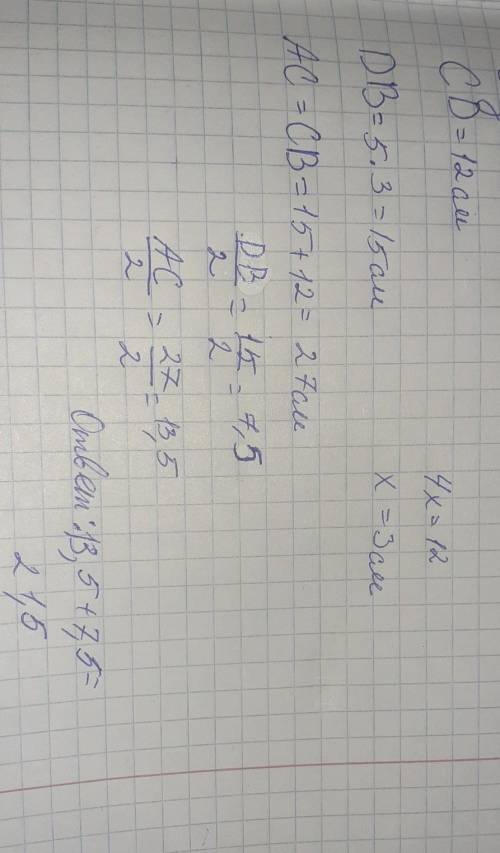 CD = 12 см
4x = 12
DB = 5 . 3 = 15 см
x = 3 см
AC = CB = 15 + 12 = 27 см
DB/2 = 15/2 = 7,5
AC/2 = 27/2 = 13,5
Ответ: 13,5 + 7,5 =
21,5